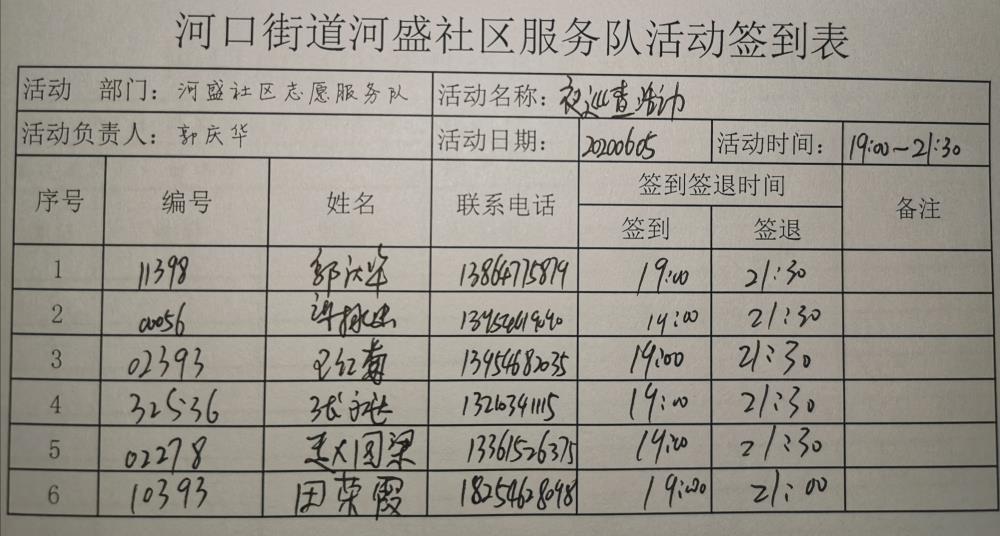 河口街道河盛社区服务队活动签到表
活动 部门：河盛社区志愿服务队 活动名称：夜巡查活动
活动负责人：郭庆华 活动日期：20200605 活动时间：19:00～21:30
序号 编号 姓名 联系电话 签到签退时间 备注
签到 签退
1 11398 郭庆华 13864775879 19:00 21:30
2 00056 19:00 21:30
3 02393 王红菊 13954682035 19:00 21:30
4 32536 19:00 21:30
5 02278 13361526375 19:00 21:30
6 10393 田荣霞 18254628098 19:00 21:00